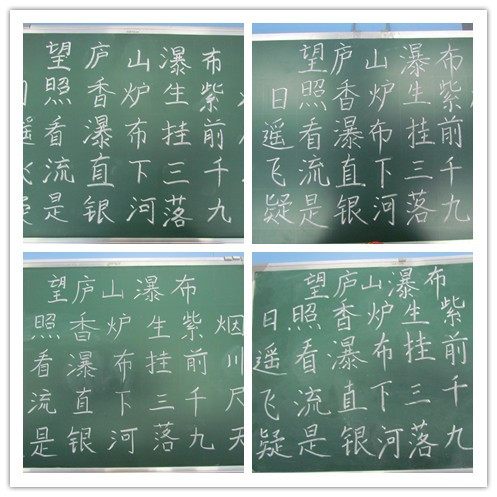 望庐山瀑布
日照香炉生紫
遥看瀑布挂前
飞流直下三千
疑是银河落九
望庐山瀑布
日照香炉生紫
遥看瀑布挂前
飞流直下三千
疑是银河落九
望庐山瀑布
照香炉生紫烟
看瀑布挂前川
流直下三千尺
是银河落九天
望庐山瀑布
日照香炉生紫
遥看瀑布挂前
飞流直下三千
疑是银河落九